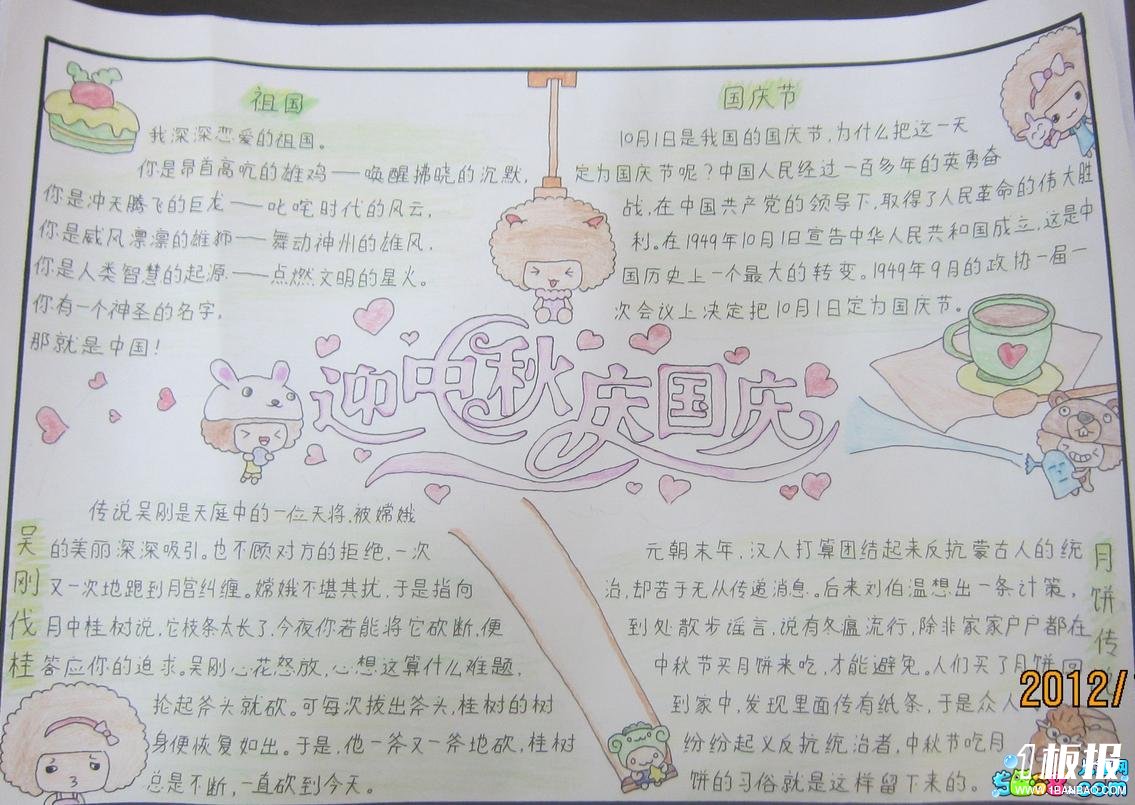 祖国
我深深恋爱的祖国。
你是昂首高吭的雄鸡——唤醒拂晓的沉默,
你是冲天腾飞的巨龙——叱咤时代的风云,
你是威风凛凛的雄狮——舞动神州的雄风.
你是人类智慧的起源——点燃文明的星火。
你有一个神圣的名字,
那就是中国!
国庆节
10月1日是我国的国庆节,为什么把这一天
定为国庆节呢?中国人民经过一百多年的英勇奋
战,在中国共产党的领导下,取得了人民革命的伟大胜
利。在1949年10月1日宣告中华人民共和国成立,这是中
国历史上一个最大的转变。1949年9月的政协一届一
次会议上决定把10月1日定为国庆节。
迎中秋 庆国庆
吴刚伐桂
传说吴刚是天庭中的一位天将,被嫦娥
的美丽深深吸引。也不顾对方的拒绝,一次
又一次地跑到月宫纠缠。嫦娥不堪其扰,于是指向
月中桂树说,它枝条太长了,今夜你若能将它砍断,便
答应你的追求。吴刚心花怒放,心想这算什么难题,
抡起斧头就砍。可每次拔出斧头,桂树的树
身便恢复如出。于是,他一斧又一斧地砍,桂树
总是不断,一直砍到今天。
月饼传
元朝末年,汉人打算团结起来反抗蒙古人的统
治,却苦于无从传递消息。后来刘伯温想出一条计策,
到处散步谣言,说有冬瘟流行,除非家家户户都在
中秋节买月饼来吃,才能避免。人们买了月饼回
到家中,发现里面传有纸条,于是众人
纷纷起义反抗统治者,中秋节吃月
饼的习俗就是这样留下来的。
2012/
1板报
WWW.1BANBAO.COM